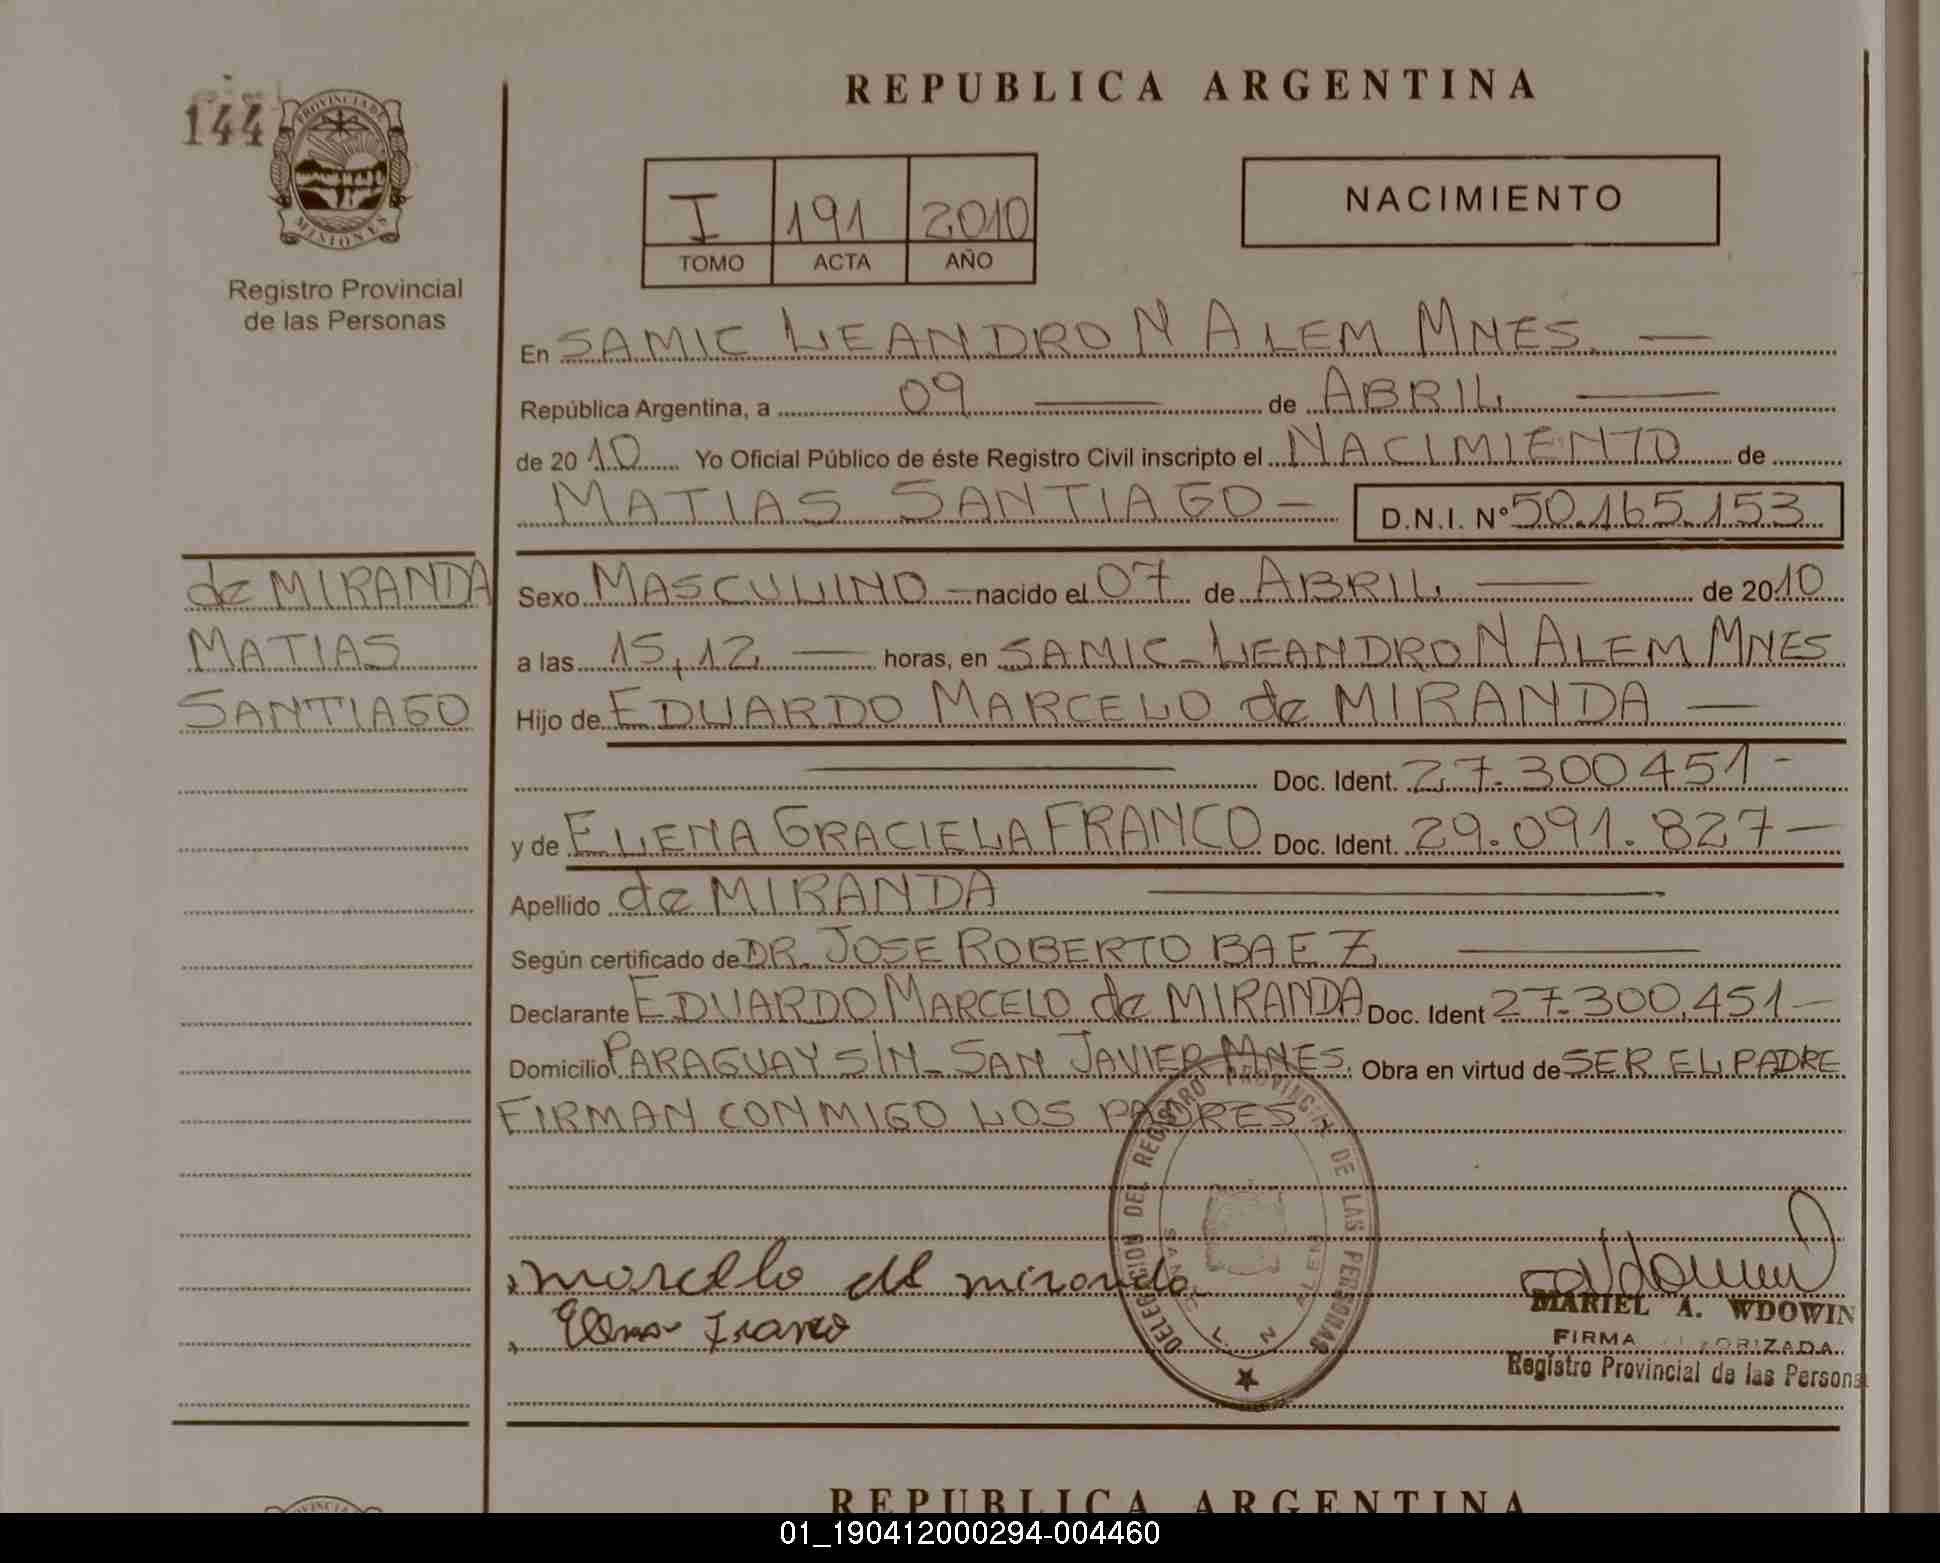 REPUBLICA ARGENTINA
144
PROVINCIA DE
MISIONES
Registro Provincial
de las Personas
I 191 2010
TOMO ACTA AÑO
NACIMIENTO
En SAMIC LEANDRO N ALEM MNES. —
República Argentina, a 09 — de ABRIL —
de 2010 Yo Oficial Público de éste Registro Civil inscripto el NACIMIENTO de
MATIAS SANTIAGO — D.N.I. N° 50.165.153
de MIRANDA
MATIAS
SANTIAGO
Sexo MASCULINO — nacido el 07 de ABRIL — de 2010
a las 15,12 — horas, en SAMIC - LEANDRO N ALEM MNES
Hijo de EDUARDO MARCELO de MIRANDA —
— Doc. Ident. 27.300451 -
y de ELENA GRACIELA FRANCO Doc. Ident. 29.091.827 —
Apellido de MIRANDA —
Según certificado de DR. JOSE ROBERTO BAEZ —
Declarante EDUARDO MARCELO de MIRANDA Doc. Ident 27.300.451 —
Domicilio PARAGUAY S/N - SAN JAVIER MNES. Obra en virtud de SER EL PADRE
FIRMAN CONMIGO LOS PADRES
DELEGACION DEL REGISTRO PROVINCIAL DE LAS PERSONAS
SAMIC L. N ALEM
marcelo de miranda
Elena Franco
MARIEL A. WDOWIN
FIRMA
Registro Provincial de las Persona
REPUBLICA ARGENTINA
01_190412000294-004460